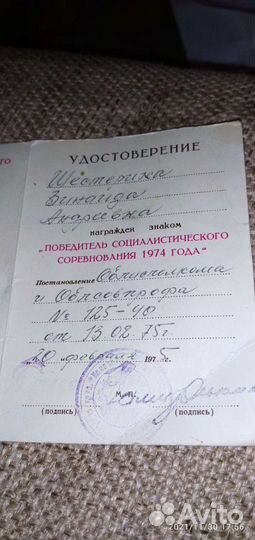 УДОСТОВЕРЕНИЕ
Шестериха
Зинаида
Андреевна
награжден знаком
„ПОБЕДИТЕЛЬ СОЦИАЛИСТИЧЕСКОГО
СОРЕВНОВАНИЯ 1974 ГОДА"
Постановление Облисполкома
и Облсовпрофа
№ 125-40
от 13 02. 75 г.
„20" февраля 1975 г.
М. П.
(подпись) (подпись)
Avito
2021/11/30 17:56